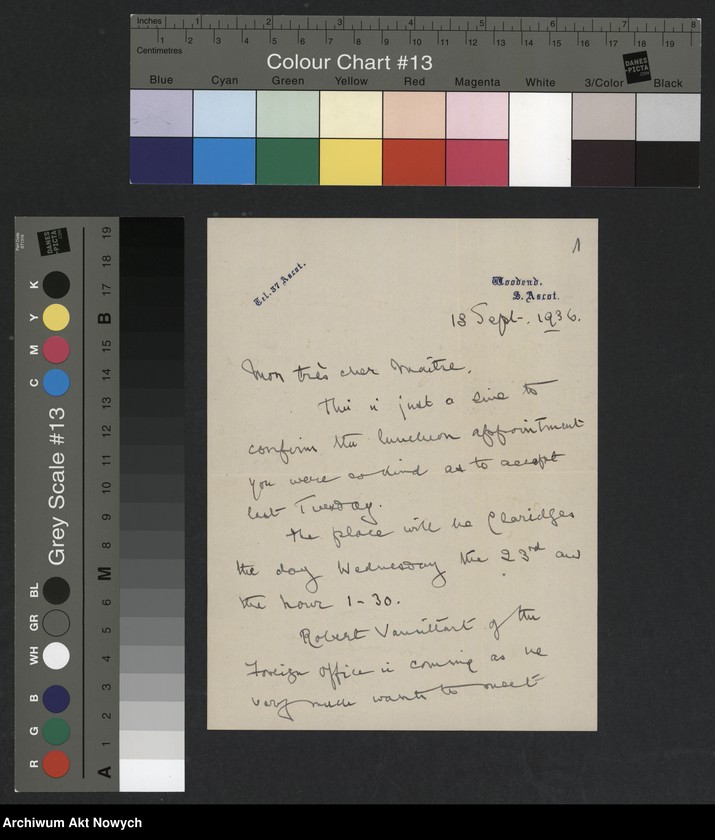 Inches 1 2 3 4 5 6 7 8
Centimetres 1 2 3 4 5 6 7 8 9 10 11 12 13 14 15 16 17 18 19
Colour Chart #13
DANES-PICTA
Blue Cyan Green Yellow Red Magenta White 3/Color Black
Grey Scale #13
DANES-PICTA
K Y M C
BL GR WH
B G R
A 1 2 3 4 5 6 M 8 9 10 11 12 13 14 15 B 17 18 19
1
Tel. 37 Ascot.
Woodend.
S. Ascot.
18 Sept. 1936.
Mon très cher Maître,
This is just a line to
confirm the luncheon appointment
you were so kind as to accept
last Tuesday.
The place will be Claridges
the day Wednesday the 23rd and
the hour 1-30.
Robert Vansittart of the
Foreign Office is coming as he
very much wants to meet
Archiwum Akt Nowych